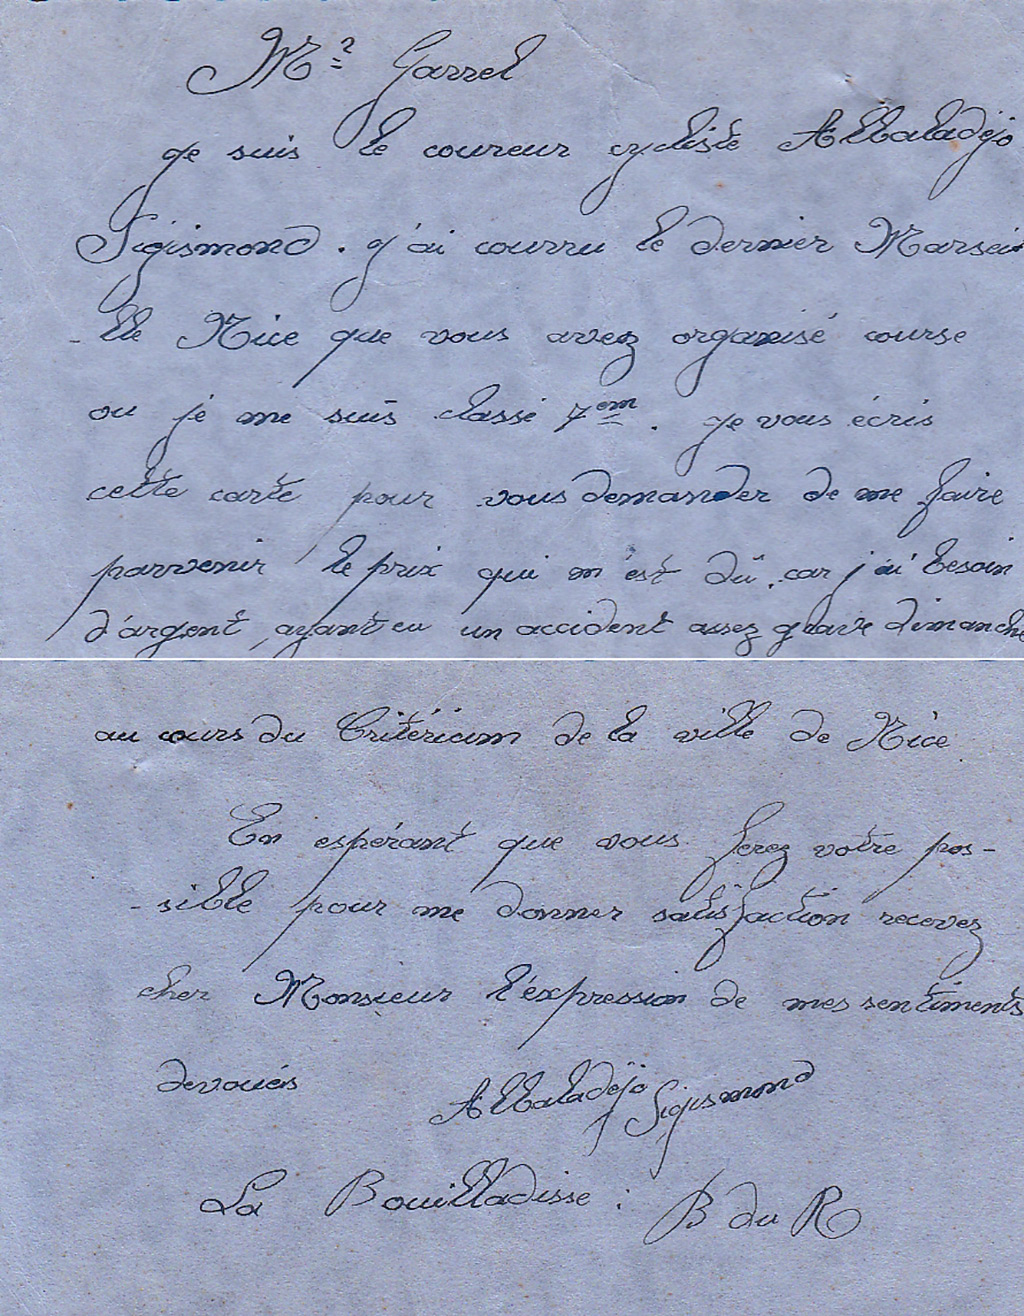 Mr Garrel
je suis le coureur cycliste Albaladéjo
Sigismond. j'ai courru le dernier Marsei
-lle Nice que vous avez organisé course
ou je me suis classé 7em. je vous écris
cette carte pour vous demander de me faire
parvenir le prix qui m'est dû, car j'ai besoin
d'argent, ayant eu un accident assez grave dimanche
au cours du Critérium de la ville de Nice
En espérant que vous ferez votre pos-
-sible pour me donner satisfaction recevez
cher Monsieur l'expression de mes sentiments
devoués
Albaladéjo Sigismond
La Bouilladisse : B du R